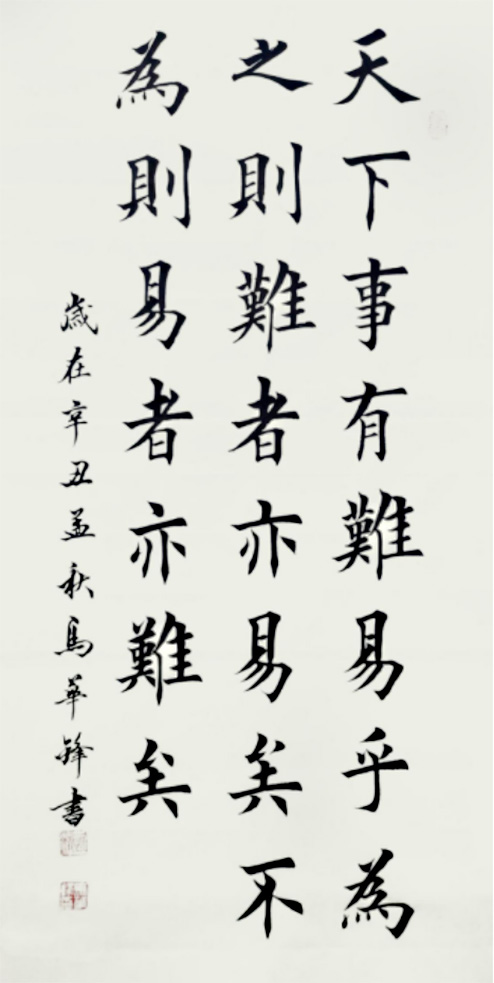 天下事有難易乎為
之則難者亦易矣不
為則易者亦難矣
歲在辛丑孟秋馬華鋒書